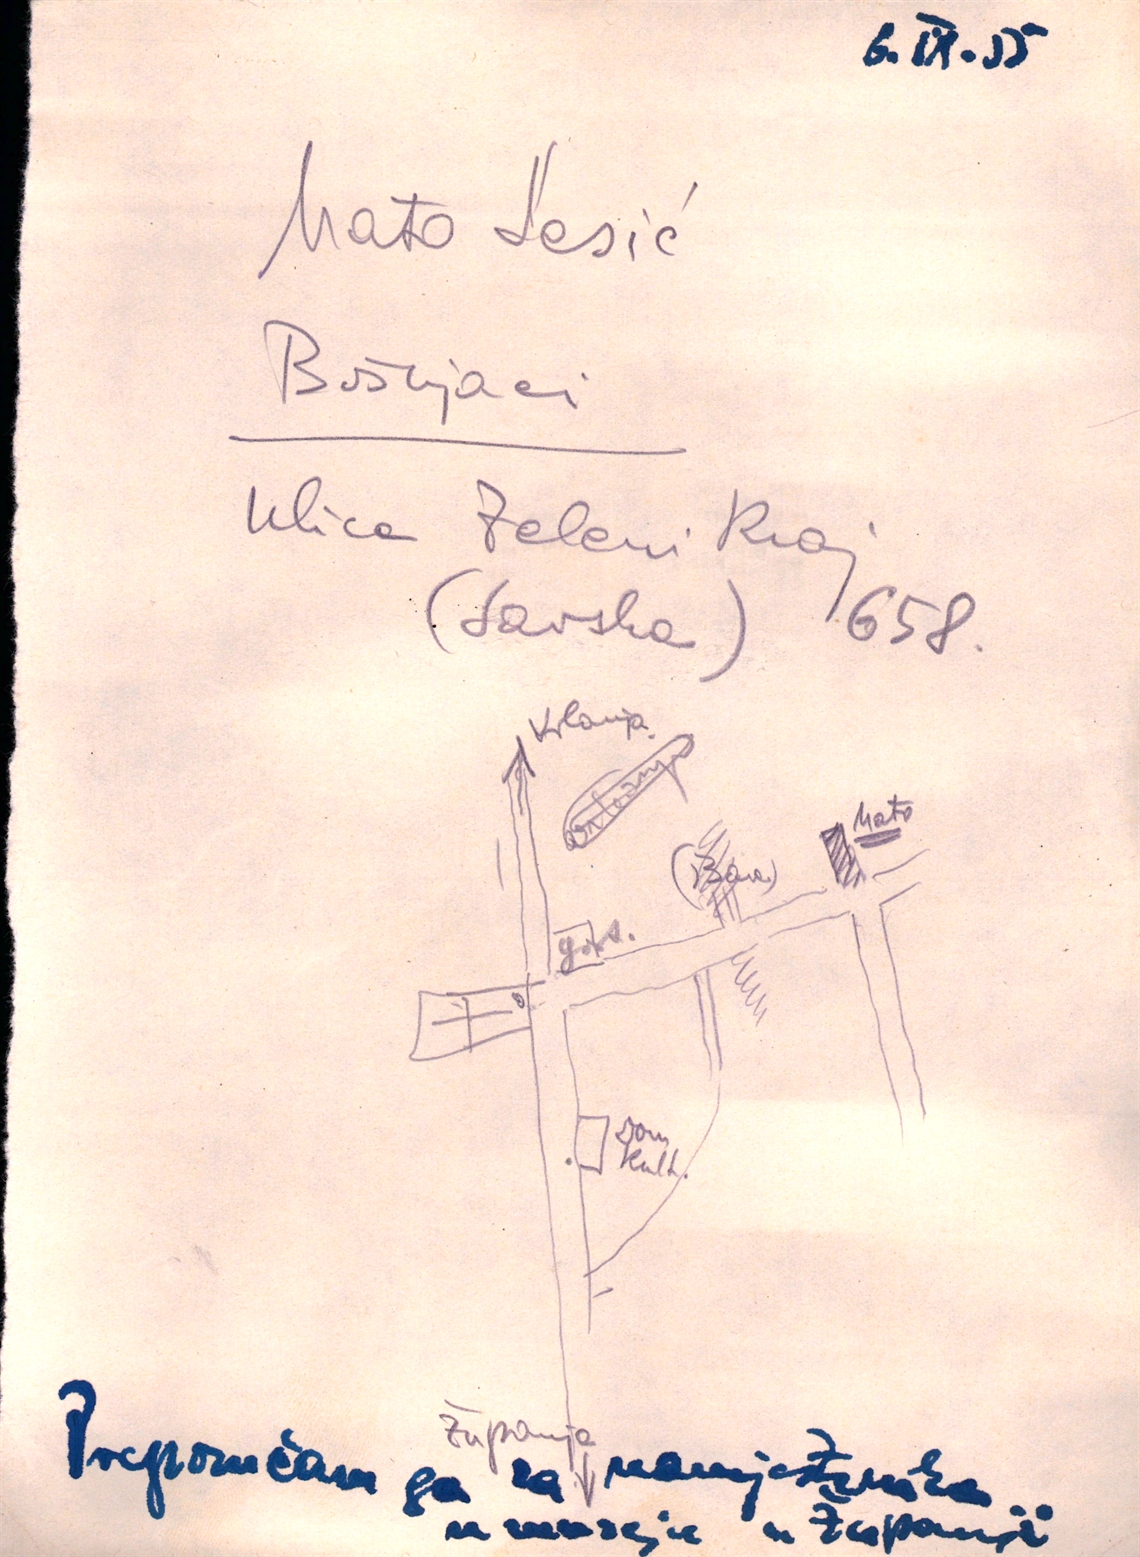 6. IX. 55
Mato Šesić
Bošnjaci
Ulica Zeleni Kraj
(Savska) 658.
Vrbanja.
Mato
(Bara)
gost.
Dom
kult.
Županja
Preporučam ga za namještenika
u muzeju u Županji